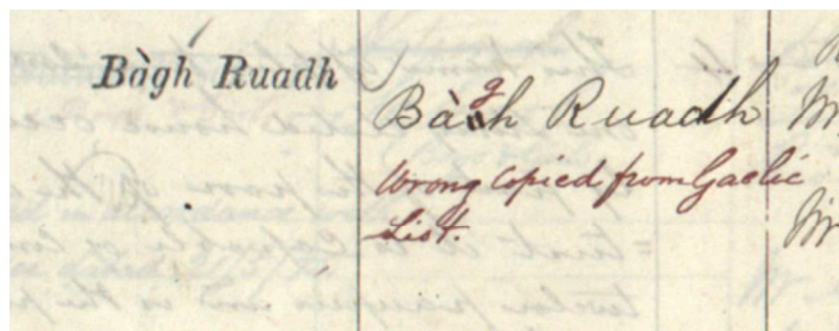 Bàgh Ruadh
Bàgh Ruadh
Wrong Copied from Gaelic
List.